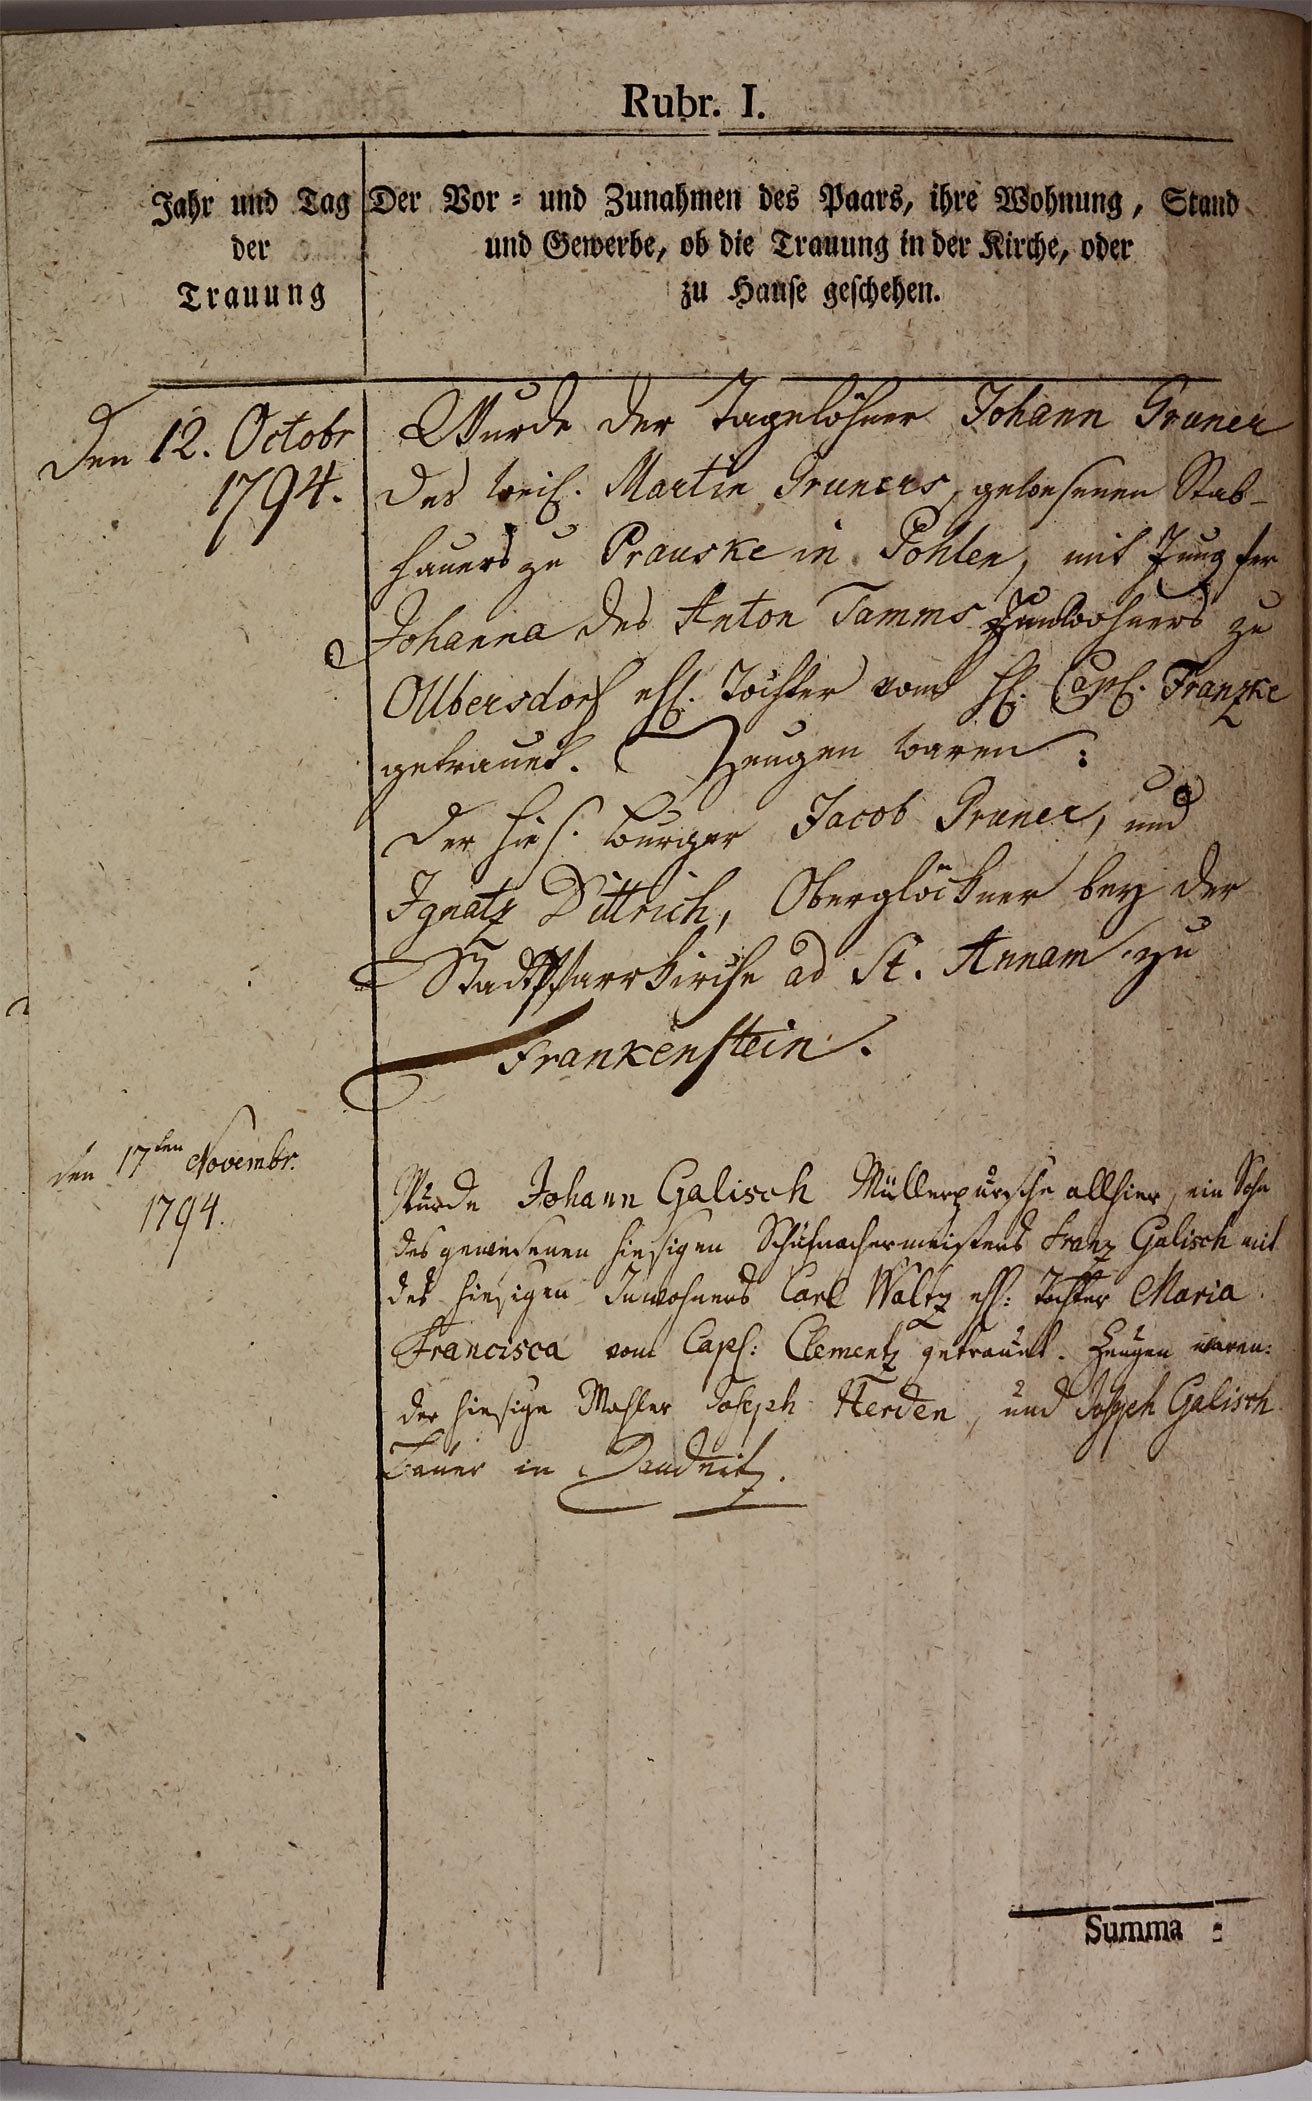 Rubr. I.
Jahr und Tag
der
Trauung
Der Vor = und Zunahmen des Paars, ihre Wohnung, Stand
und Gewerbe, ob die Trauung in der Kirche, oder
zu Hause geschehen.
Den 12. Octobr
1794.
Wurde der Tagelöhner Johann Gruner
des weil. Martin Gruners, gewesenen
zu Prauske in Pohlen, mit Jungfer
Johanna des Anton Tamms Innwohners zu
Olbersdorf ehl. Tochter vom H. Capl. Franzke
getrauet. Zeugen waren:
der hies. Burger Jacob Gruner, und
Ignatz Dittrich, Oberglöckner bey der
Stadtpfarrkirche ad St. Annam zu
Frankenstein.
den 17ten Novembr.
1794.
Wurde Johann Galisch Müllerpursche allhier, ein Sohn
des gewesenen hiesigen Schuhmachermeisters Franz Galisch mit
des hiesigen Inwohners Carl Waltz ehl: Tochter Maria
Francisca vom Capl: Clementz getrauet. Zeugen waren:
der hiesige Mahler Joseph Herden, und Joseph Galisch
Bauer in
Summa =